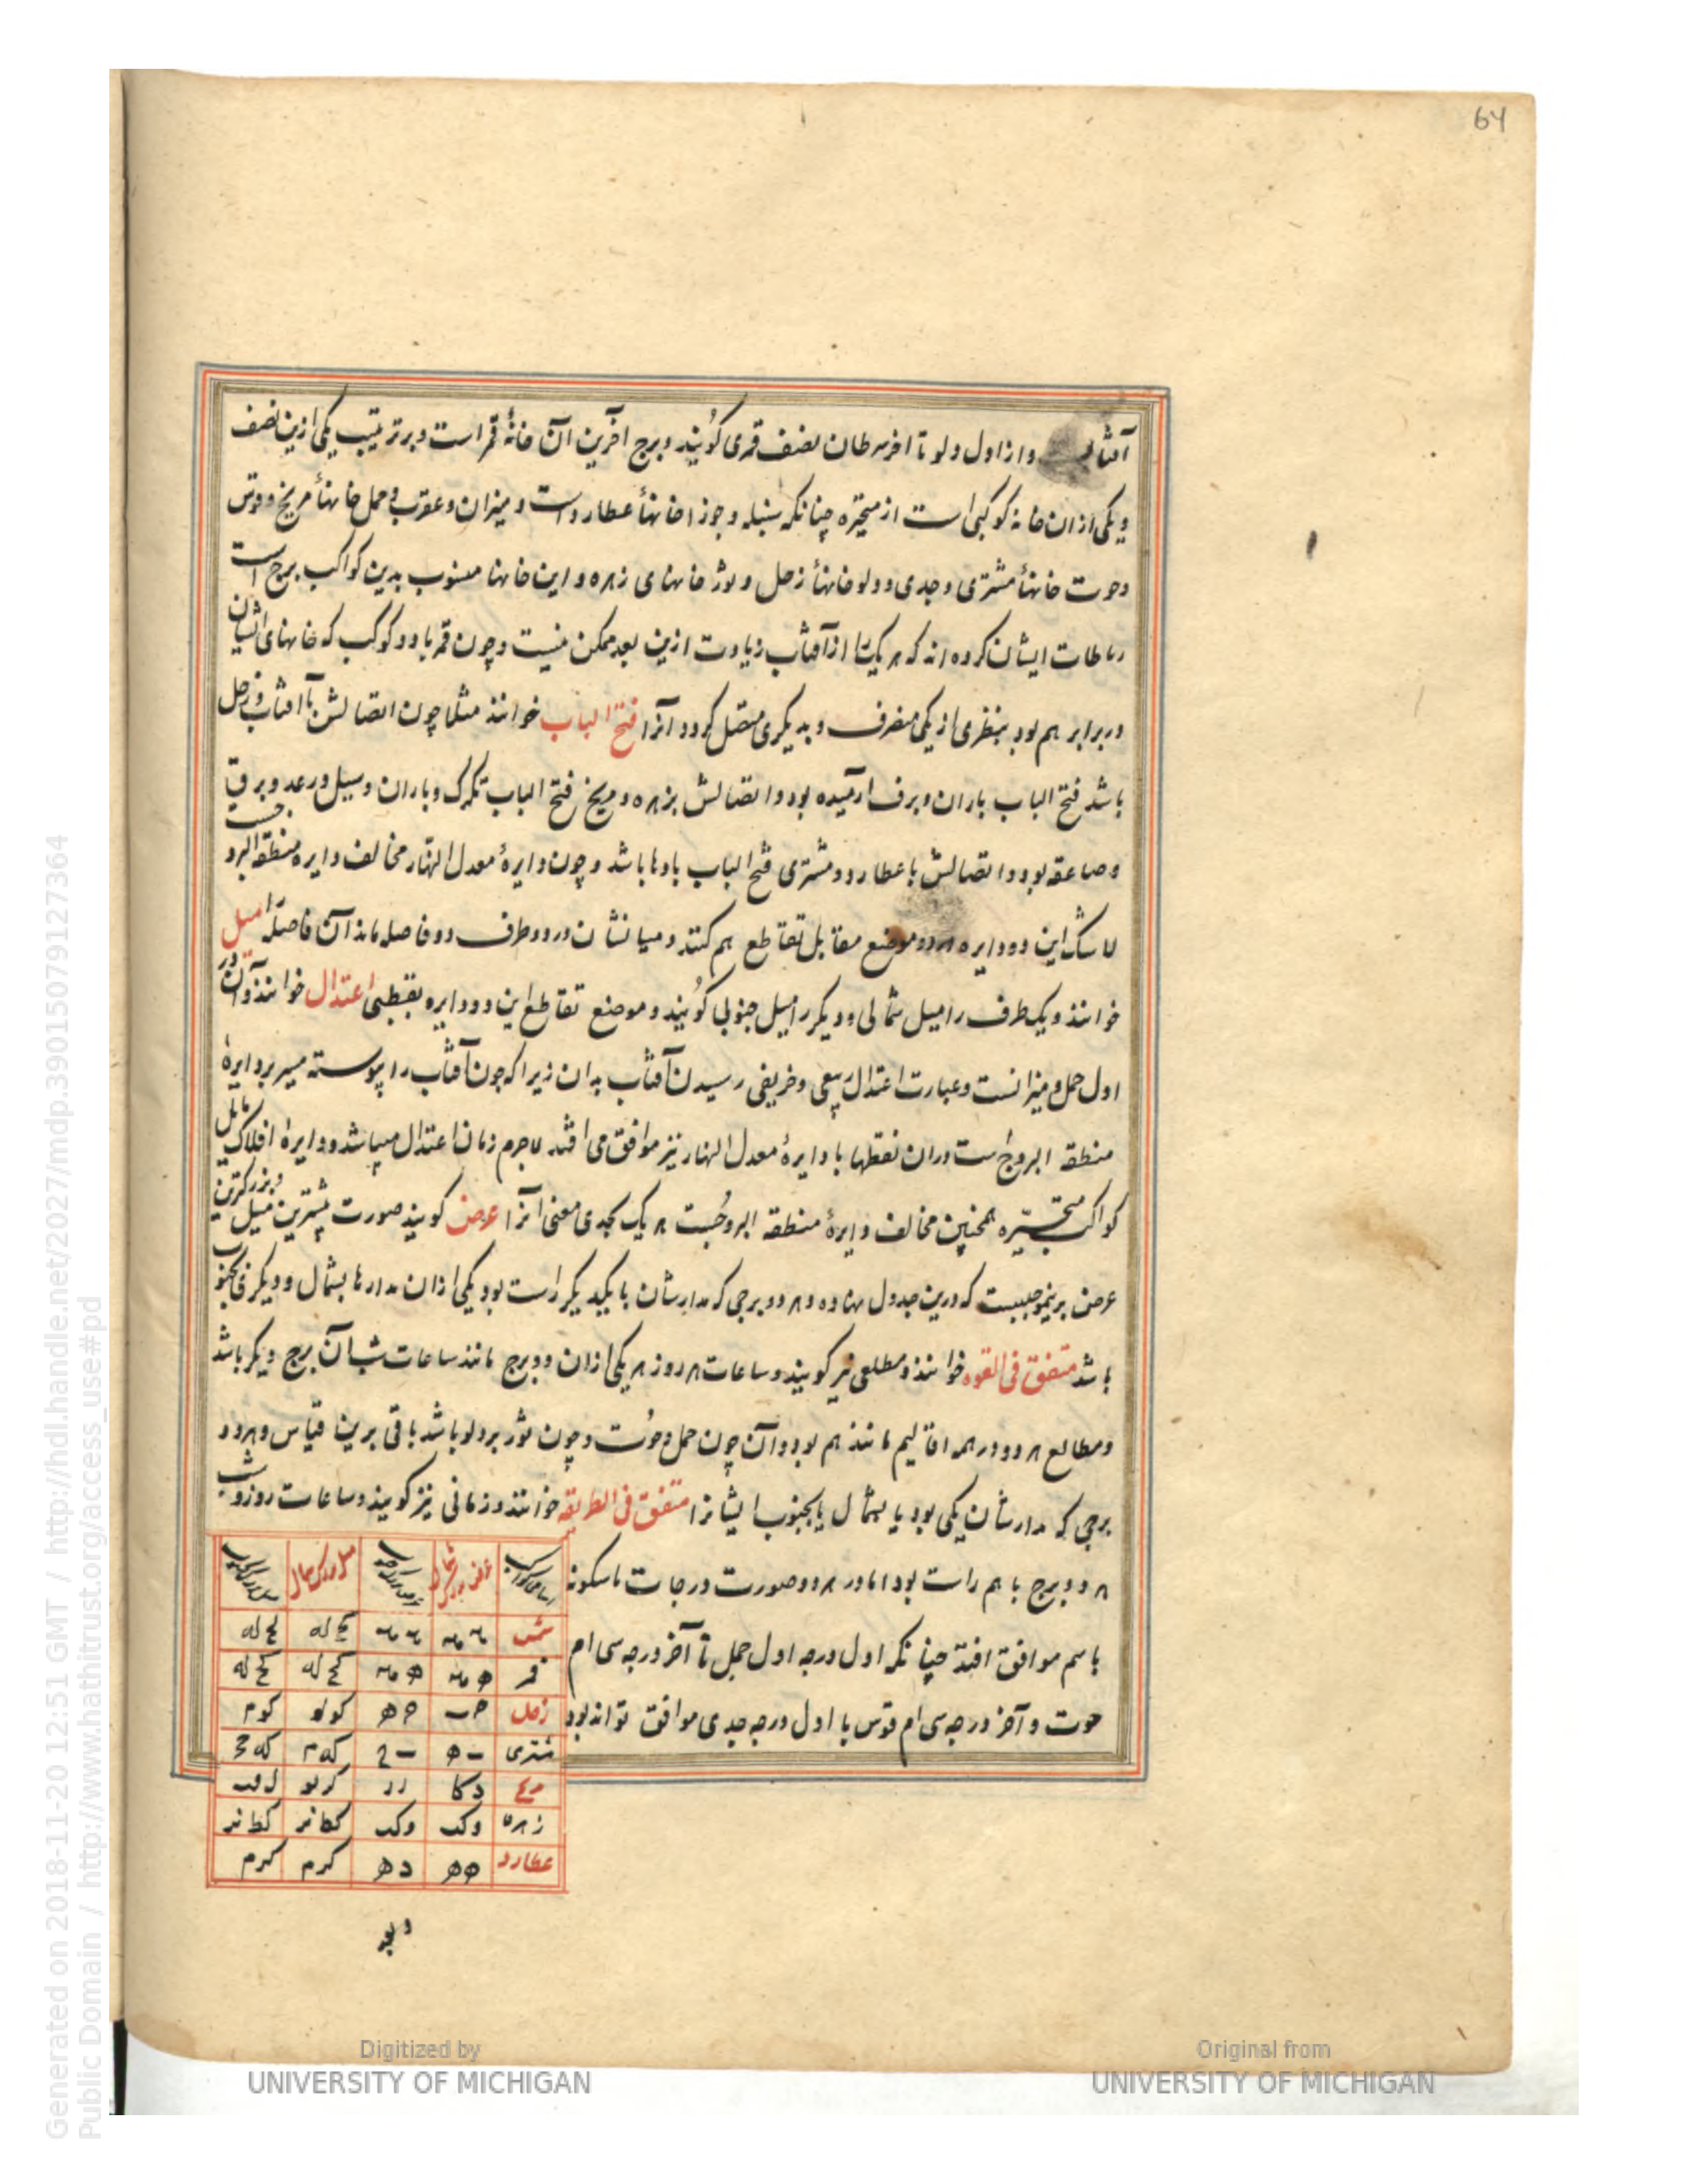 64
آفتاب و از اول دلو تا اخر سرطان نصف قمری گویند و برج اخرین آن خانهٔ قمر است و بر ترتیب یکی ازین نصف
و یکی از ان خانه کوکبی است از متحیره چنانکه سنبله و جوزا خانهأ عطارد است و میزان و عقرب و حمل خانهأ مریخ و قوس
و حوت خانهأ مشتری و جدی و دلو خانهأ زحل و ثور خانهای زهره و این خانها منسوب بدین کواکب برج است
ایشان کرده اند که هر یک را از آفتاب زیادت ازین بعد ممکن نیست و چون قمر با دو کوکب که خانهای ایشان
در برابر هم بود بنظری از یکی منصرف و بدیگری متصل گردد آنرا فتح الباب خوانند مثلا چون اتصالش با آفتاب و زحل
باشد فتح الباب باران و برف ارمیده بود و اتصالش بزهره و مریخ فتح الباب تگرگ و باران و سیل و رعد و برق
و صاعقه بود و اتصالش با عطارد و مشتری فتح الباب بادها باشد و چون دایرهٔ معدل النهار مخالف دایره منطقة البروجست
لا شک این دو دایره هر دو موضع مقابل تقاطع هم کنند و میانشان در دو طرف دو فاصله ماند آن فاصله را میل
خوانند و یک طرف را میل شمالی و دیگر را میل جنوبی گویند و موضع تقاطع این دو دایره بقطبی اعتدال خوانند و آن در
اول حمل و میزانست و عبارت اعتدال ربیعی و خریفی رسیدن آفتاب بدان زیرا که چون آفتاب را پیوسته میسر بر دایرهٔ
منطقه البروج است دران نقطها با دایرهٔ معدل النهار نیز موافق می افتد لاجرم زمان اعتدال میباشد و دایرهٔ افلاک مایل
کواکب متحیّره همچنین مخالف دایرهٔ منطقه البروجست هر یک بحدی معنی آنرا عرض گویند صورت بیشترین میل و بزرگترین
عرض برینموجبیست که درین جدول نهاده و هر دو برجی که مدارشان با یکدیگر راست بود یکی از ان مدارها بشمال و دیگری بجنوب
باشد متفق فی القوه خوانند و مطلعی نیز گویند و ساعات هر روز هر یکی از ان دو برج مانند ساعات شب آن برج دیگر باشد
و مطالع هر دو در همه اقالیم مانند هم بود و آن چون حمل و حوت و چون ثور بر دلو باشد باقی برین قیاس و هر دو
برجی که مدارشان یکی بود یا بشمال یا بجنوب ایشانرا متفق فی الطریقه خوانند و زمانی نیز گویند و ساعات روز و شب
هر دو برج با هم راست بود اما در هر دو صورت درجات
باسم موافق افتد چنانکه اول درجه اول حمل تا آخر درجه سی ام
حوت و آخر درجه سی ام قوس با اول درجه جدی موافق تواند بود
شمس
قمر
زحل
مشتری
مریخ
زهره
عطارد
Digitized by
UNIVERSITY OF MICHIGAN
Original from
UNIVERSITY OF MICHIGAN
Generated on 2018-11-20 12:51 GMT / http://hdl.handle.net/2027/mdp.39015079127364
Public Domain / http://www.hathitrust.org/access_use#pd